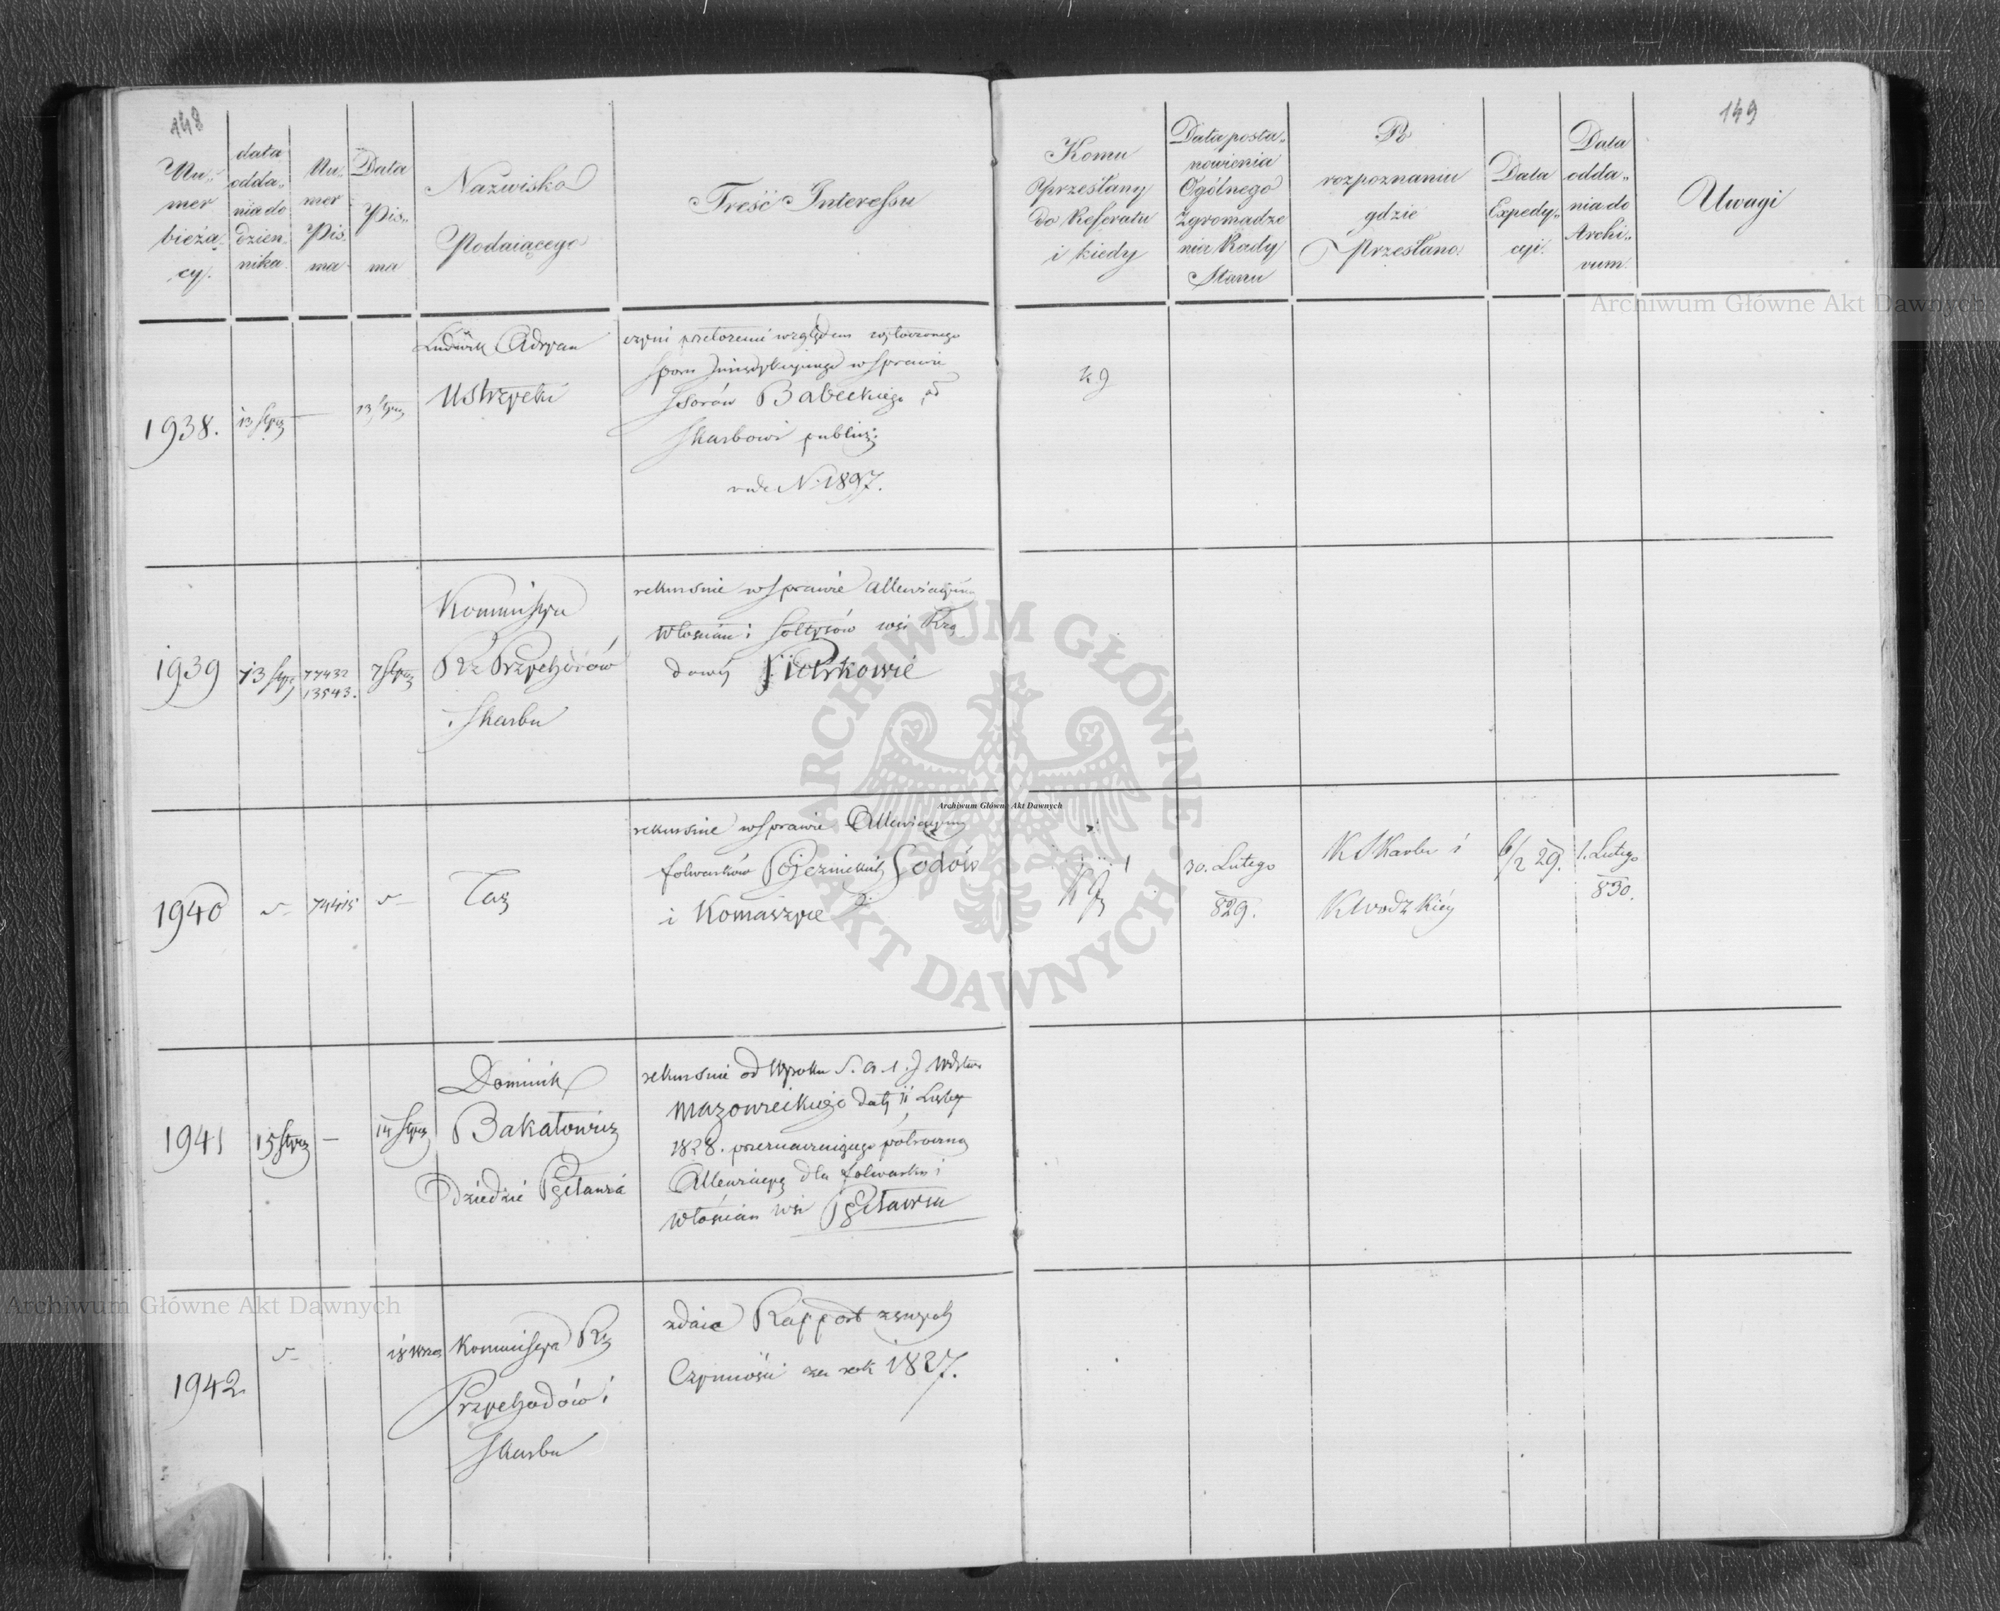 148
Nu-
mer
bieżą-
cy.
data
odda-
nia do
dzien-
nika
Nu-
mer
Pis-
ma
Data
Pis-
ma
Nazwisko
Podaiącego
Treść Interessu
149
Komu
przesłany
do Referatu
i kiedy
Data posta-
nowienia
Ogólnego
Zgromadze
nia Rady
Stanu
Po
rozpoznaniu
gdzie
Przesłano
Data
Expedy-
cyi.
Data
odda-
nia do
Archi-
vum.
Uwagi
1938.
13 Stycz
13 Stycz
Ludwik Adryan
Ustrzycki
czyni przełożenie względem wytoczonego
sporu Jurisdykcyjnego w Sprawie
Ssorów Babeckiego
Skarbowi publicz:
vide N. 1897.
1939
13 Stycz
77432
13543.
7 Stycz
Kommissya
Rz Przychodów
i Skarbu
rekursuie w Sprawie Allewiacyi
Włościan i Sołtysów wsi
Piotrkowie
1940
74415
Taż
rekursuie w Sprawie Allewiacyi
folwarków Godów
i Komaszyce
30. Lutego
829.
K Skarbu i
K Wodzkiey
6/2 29.
1. Lutego
830.
1941
15 Stycz
14 Stycz
Dominik
Bakałowicz
Dziedzic
rekursuie od Wyroku S. A. I. J Wdztwa
Mazowieckiego daty 11
1828. przeznaczaiącego półroczną
Allewiacyą dla folwarku i
Włościan Wsi
1942.
18 Wrześ
Kommissya Rz
Przychodów i
Skarbu
zdaie Rapport z swych
Czynności za rok 1827.
ARCHIWUM GŁÓWNE AKT DAWNYCH
Archiwum Główne Akt Dawnych
Archiwum Główne Akt Dawnych
Archiwum Główne Akt Dawnych